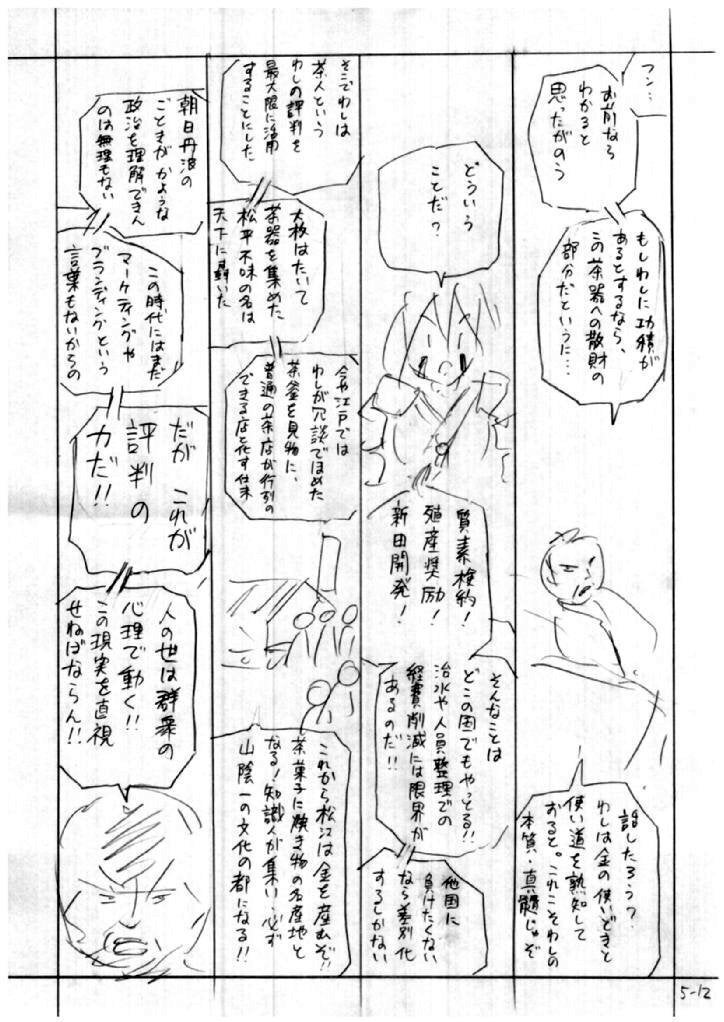 フン…
お前なら
わかると
思ったがのう
もしわしに功績が
あるとするなら、
この茶器への散財の
部分だというに…
話したろう?
わしは金の使いどきと
使い道を熟知して
おると。これこそわしの
本質・真髄じゃぞ
どういう
ことだ?
質素倹約!
殖産奨励!
新田開発!
そんなことは
どこの国でもやっとる!!
治水や人員整理での
経費削減には限界が
あるのだ!!
他国に
負けたくない
なら差別化
するしかない
そこでわしは
茶人という
わしの評判を
最大限に活用
することにした
大枚はたいて
茶器を集めた
松平不昧の名は
天下に轟いた
今や江戸では
わしが冗談でほめた
茶釜を見物に、
普通の茶店が行列の
できる店と化す仕末
これから松江は金を産むぞ!!
茶菓子に焼き物の名産地と
なる!知識人が集い…必ず
山陰一の文化の都になる!!
朝日丹波の
ごときが かような
政治を理解できん
のは無理もない
この時代にはまだ
マーケティングや
ブランディングという
言葉もないからの
だが これが
評判の
力だ!!
人の世は群衆の
心理で動く!!
この現実を直視
せねばならん!!
5-12